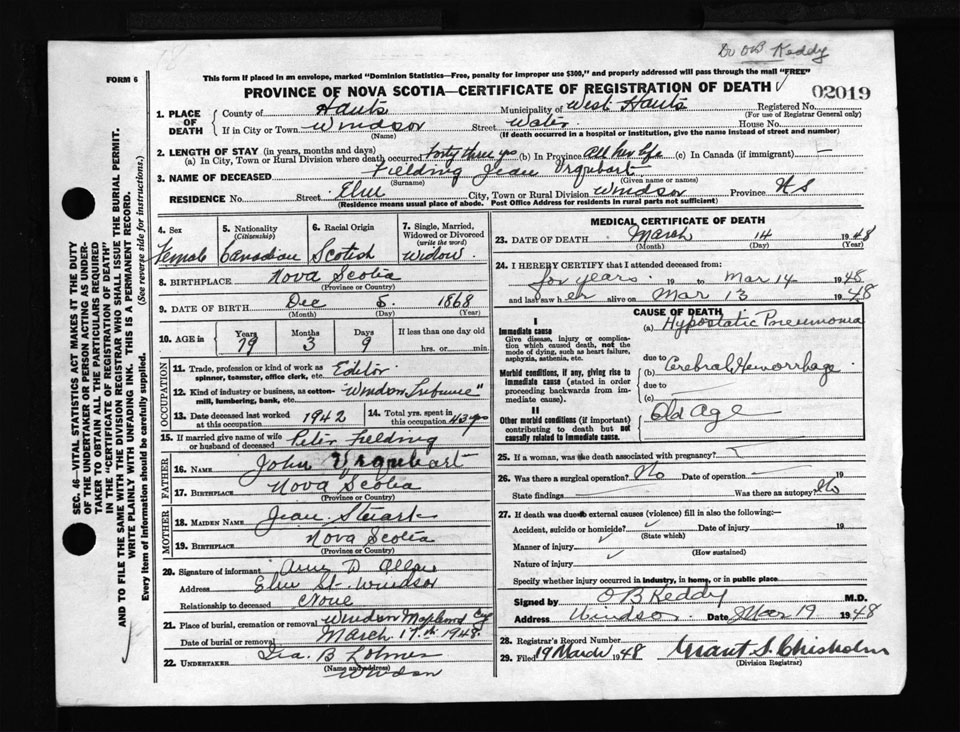 Dr OB Keddy
FORM 6
This form if placed in an envelope, marked "Dominion Statistics—Free, penalty for improper use $300," and properly addressed will pass through the mail "FREE"
PROVINCE OF NOVA SCOTIA—CERTIFICATE OF REGISTRATION OF DEATH
02019
1. PLACE OF DEATH
County of Hants Municipality of West Hants Registered No.
(For use of Registrar General only)
If in City or Town Windsor Street Water House No.
(Name) (If death occurred in a hospital or institution, give the name instead of street and number)
2. LENGTH OF STAY (in years, months and days)
(a) In City, Town or Rural Division where death occurred forty three yrs (b) In Province All her life (c) In Canada (if immigrant) —
3. NAME OF DECEASED Fielding Jean Urquhart
(Surname) (Given name or names)
RESIDENCE No. Street Elm City, Town or Rural Division Windsor Province NS
(Residence means usual place of abode. Post Office Address for residents in rural parts not sufficient)
4. Sex
Female
5. Nationality
(Citizenship)
Canadian
6. Racial Origin
Scotish
7. Single, Married, Widowed or Divorced
(write the word)
Widow
8. BIRTHPLACE Nova Scotia
(Province or Country)
9. DATE OF BIRTH Dec 5. 1868
(Month) (Day) (Year)
10. AGE in Years Months Days If less than one day old
79 3 9 hrs. or min.
OCCUPATION
11. Trade, profession or kind of work as Editor
spinner, teamster, office clerk, etc.
12. Kind of industry or business, as cotton- "Windsor Tribune"
mill, lumbering, bank, etc.
13. Date deceased last worked at this occupation 1942
14. Total yrs. spent in this occupation 43 yrs
15. If married give name of wife or husband of deceased Peter Fielding
FATHER
16. NAME John Urquhart
17. BIRTHPLACE Nova Scotia
(Province or Country)
MOTHER
18. MAIDEN NAME Jean Stuart
19. BIRTHPLACE Nova Scotia
(Province or Country)
20. Signature of informant
Address Elm St. Windsor
Relationship to deceased None
21. Place of burial, cremation or removal Windsor
Date of burial or removal March 17th 1948.
22. UNDERTAKER Ira. B
(Name and address)
Windsor
MEDICAL CERTIFICATE OF DEATH
23. DATE OF DEATH March 14 1948
(Month) (Day) (Year)
24. I HEREBY CERTIFY that I attended deceased from:
for years. 19 to Mar 14 1948
and last saw h er alive on Mar 13 1948
CAUSE OF DEATH
I
Immediate cause
Give disease, injury or complication which caused death, not the mode of dying, such as heart failure, asphyxia, asthenia, etc.
(a) Hypostatic Pneumonia
due to
Morbid conditions, if any, giving rise to immediate cause (stated in order proceeding backwards from immediate cause).
(b) Cerebral Hemorrhage
due to
(c)
II
Other morbid conditions (if important) contributing to death but not causally related to immediate cause.
Old Age
25. If a woman, was the death associated with pregnancy?
26. Was there a surgical operation? No Date of operation 19
State findings Was there an autopsy? No
27. If death was due to external causes (violence) fill in also the following:—
Accident, suicide or homicide? Date of injury 19
(State which)
Manner of injury
(How sustained)
Nature of injury
Specify whether injury occurred in industry, in home, or in public place
Signed by OB Keddy M.D.
Address Windsor Date Mar 19 1948
28. Registrar's Record Number
29. Filed 19 March 1948 Grant S. Chisholm
(Division Registrar)
SEC. 46—VITAL STATISTICS ACT MAKES IT THE DUTY
OF THE UNDERTAKER OR PERSON ACTING AS UNDER-
TAKER TO OBTAIN ALL THE PARTICULARS REQUIRED
IN THE "CERTIFICATE OF REGISTRATION OF DEATH"
AND TO FILE THE SAME WITH THE DIVISION REGISTRAR WHO SHALL ISSUE THE BURIAL PERMIT.
WRITE PLAINLY WITH UNFADING INK. THIS IS A PERMANENT RECORD.
Every item of information should be carefully supplied. (See reverse side for instructions.)